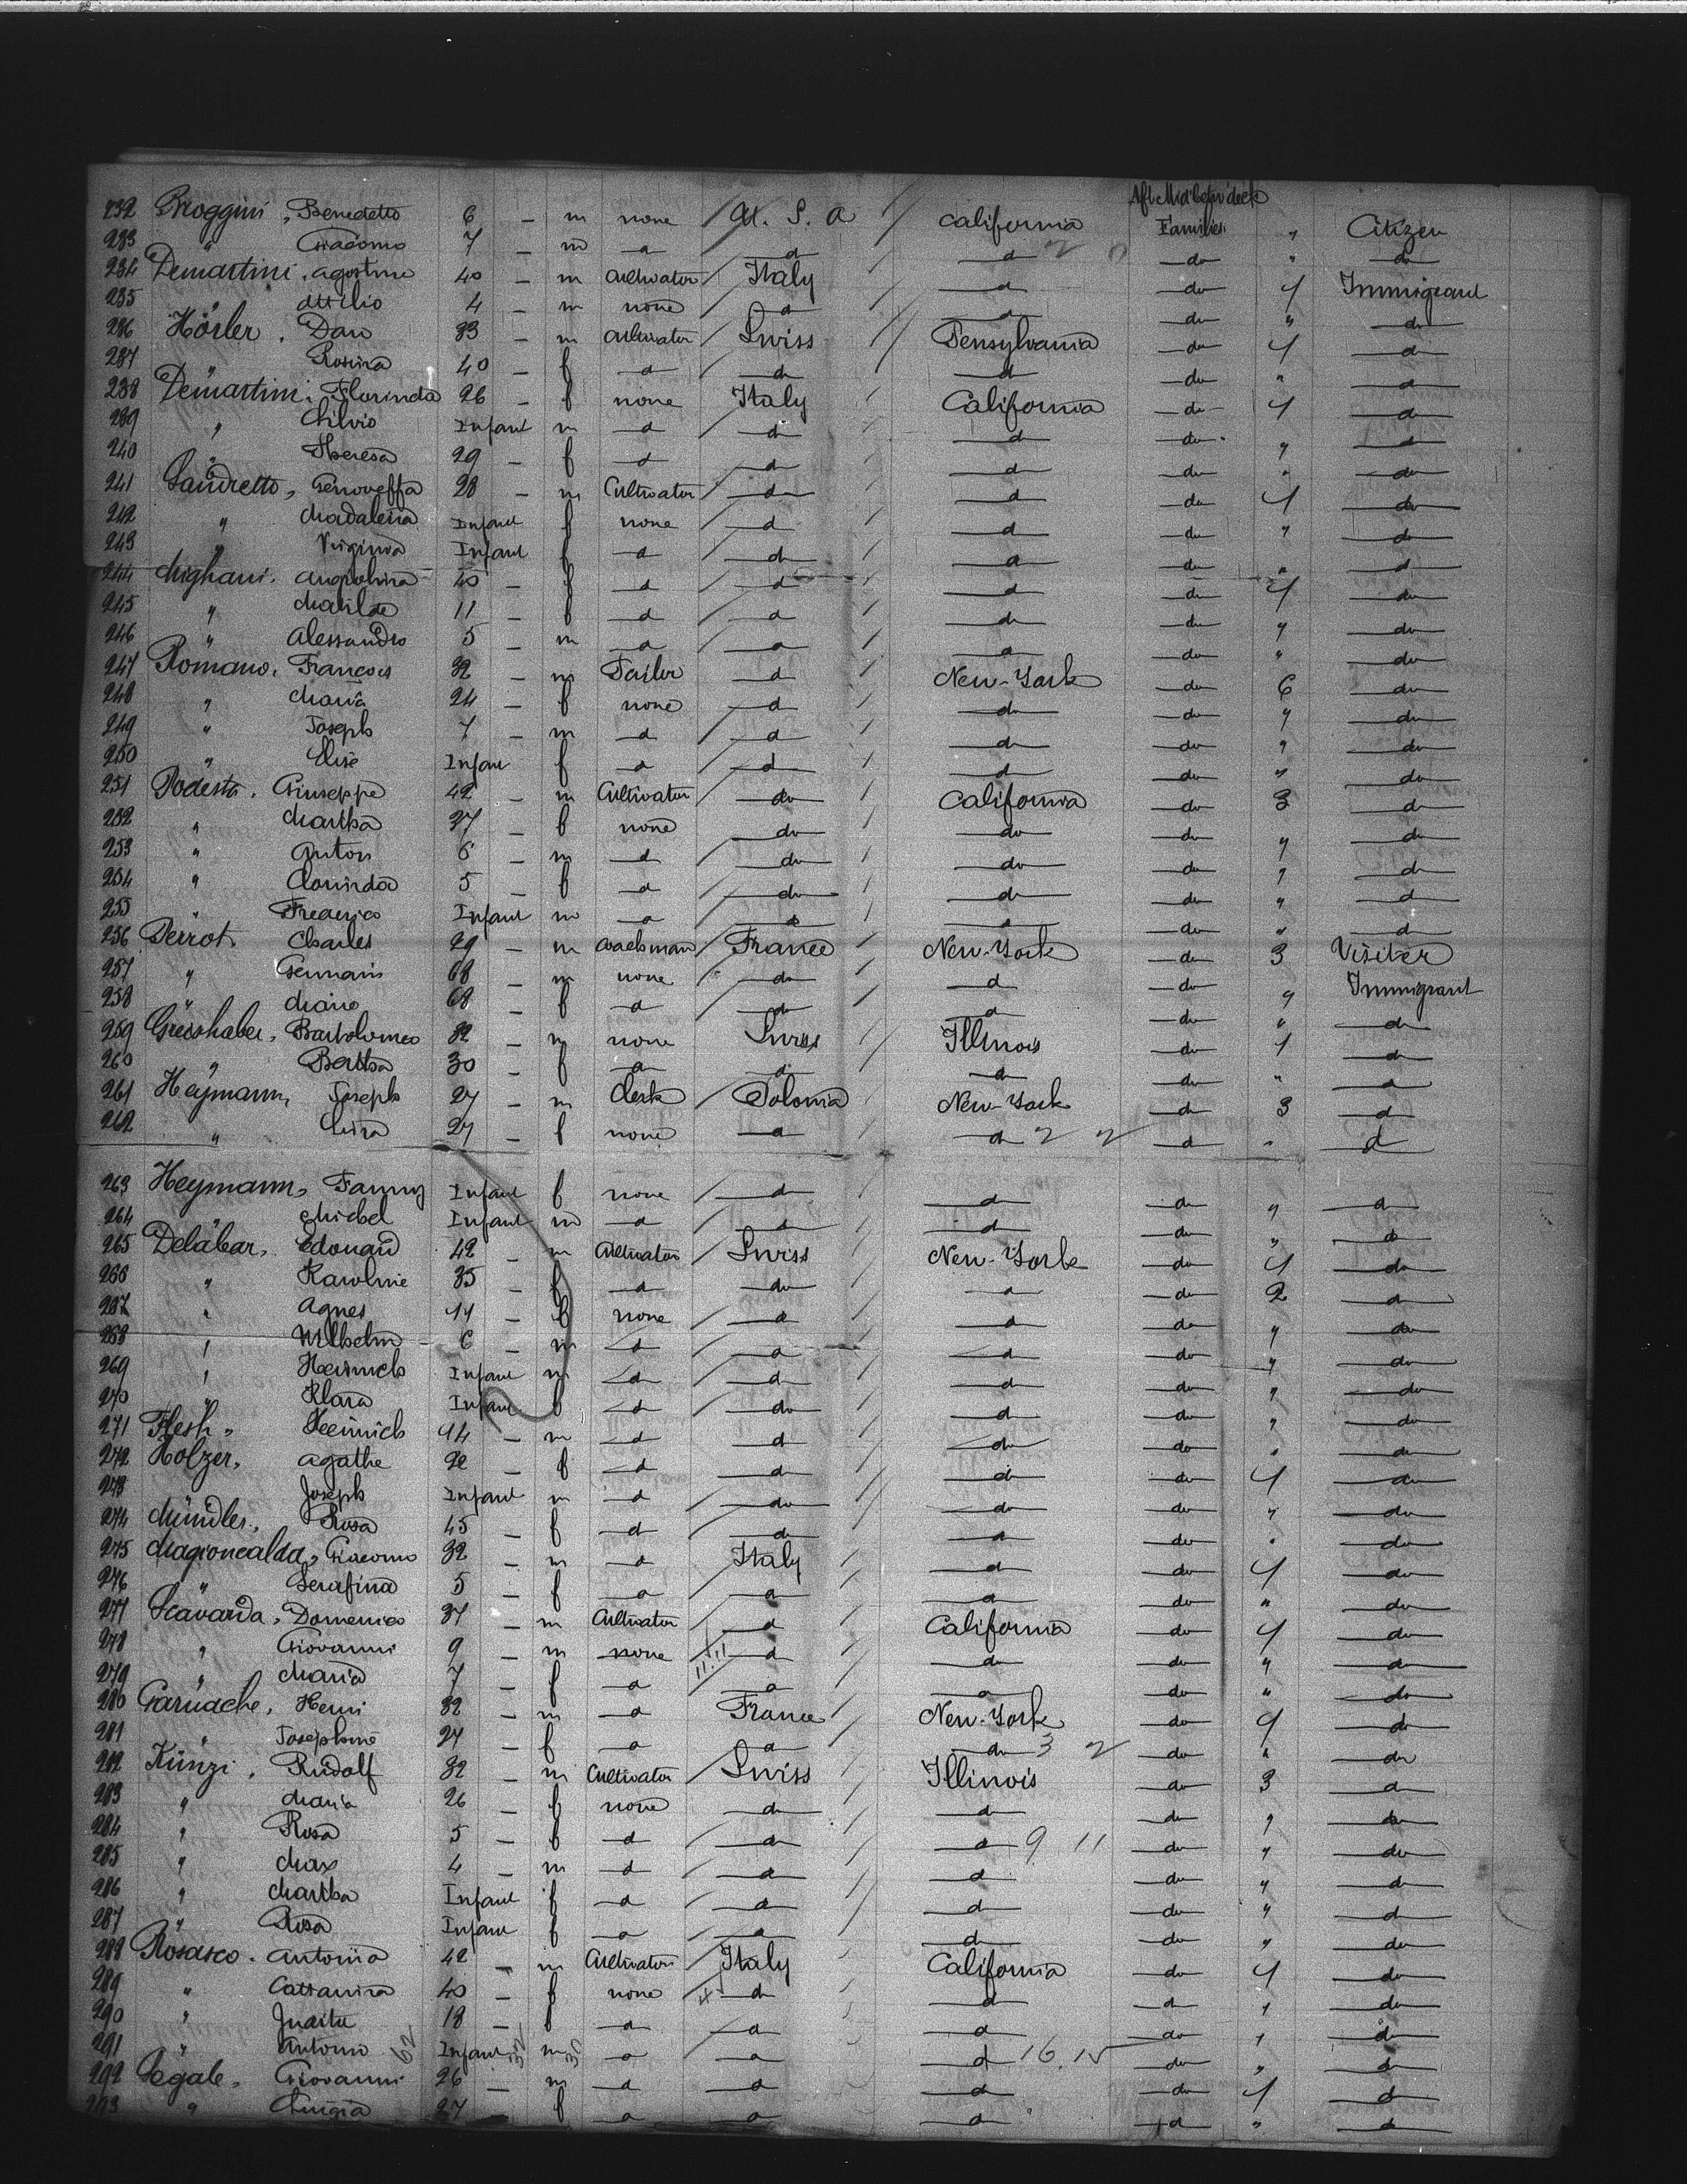 Aft Mid betw deck
232 Broggini, Benedetto 6 - m none U. S. A California Families " Citizen
233 " Giacomo 7 - m d d d 2 0 do " do
234 Demartini, Agostino 40 - m Cultivator Italy d do 1 Immigrant
235 " Attilio 4 - m none d d do " do
236 Hösler, Dan 33 - m Cultivator Swiss Pensylvania do 1 d
237 " Rosina 40 - f d d d do " d
238 Demartini, Florinda 26 - f none Italy California do 1 d
239 " Silvio Infant m d d d do " d
240 " Theresa 29 - f d d d do " do
241 Sandretto, Genoveffa 28 - m Cultivator do d do 1 do
242 " Madalena Infant f none d d do " do
243 " Virginia Infant f d d d do " d
244 Mighani, Angiolina 40 - f d d d do 1 do
245 " Matilde 11 - f d d do do " do
246 " Alessandro 5 - m d d d do " do
247 Romano, Francois 32 - m Tailor d New-York do 6 do
248 " Maria 24 - f none d do do " do
249 " Joseph 7 - m d d d do " do
250 " Elise Infant f d d d do " do
251 Podesta, Giuseppe 42 - m Cultivator do California do 3 d
252 " Martha 37 - f none do do do " do
253 " Anton 6 - m d do do do " d
254 " Clorinda 5 - f d do do do " d
255 " Frederico Infant m d d d do " d
256 Perrot, Charles 29 - m coachman France New-York do 3 Visiter
257 " Germain 68 - m none do d do " Immigrant
258 " Marie 68 - f d do d do " d
259 Griesshaber, Bartolomeo 32 - m none Swiss Illinois do 1 d
260 " Bertha 30 - f d d d do " d
261 Heymann, Joseph 27 - m Clerk Polonia New-York d 3 d
262 " Lisa 27 - f none d d 2 2 d " d
263 Heymann, Fanny Infant f none d d do " d
264 " Michel Infant m d d d do " d
265 Delabar, Edouard 42 - m Cultivator Swiss New-York do 1 do
266 " Karoline 35 - f d do d do 2 d
267 " Agnes 11 - f none d d do " do
268 " Wilhelm 6 - m d d d do " do
269 " Heinrich Infant m d d d do " do
270 " Klara Infant f d do d do " do
271 Flesh, Heinrich 44 - m d d do do " do
272 Holzer, Agathe 22 - f d d d do 1 do
273 Joseph Infant m d do do do " do
274 Mündler, Rosa 45 - f d d d do " do
275 Magioncalda, Giacomo 32 - m d Italy d do 1 do
276 " Serafina 5 - f d d d do " do
277 Scavarda, Domenico 37 - m Cultivator d California do 1 do
278 " Giovanni 9 - m none d do do " do
279 " Maria 7 - f d d d do " do
280 Garnache, Henri 32 - m d France New-York do 9 do
281 " Josephine 24 - f d d do 3 2 do " do
282 Künzi, Rudolf 32 - m Cultivator Swiss Illinois do 3 d
283 " Maria 26 - f none do d do " do
284 " Rosa 5 - f d d d 9 11 do " do
285 " Max 4 - m d d d do " d
286 " Martha Infant f d d d do " d
287 " Rosa Infant f d d d do " do
288 Rosasco, Antonia 42 - m Cultivator Italy California do 1 do
289 " Cattarina 40 - f none d d d " do
290 " Juaite 18 - f d d d do " d
291 " Antonio Infant m d d d 16.15 do " d
292 Segale, Giovanni 26 - m d d d do 1 d
293 " Luigia 27 - f d d d d " d